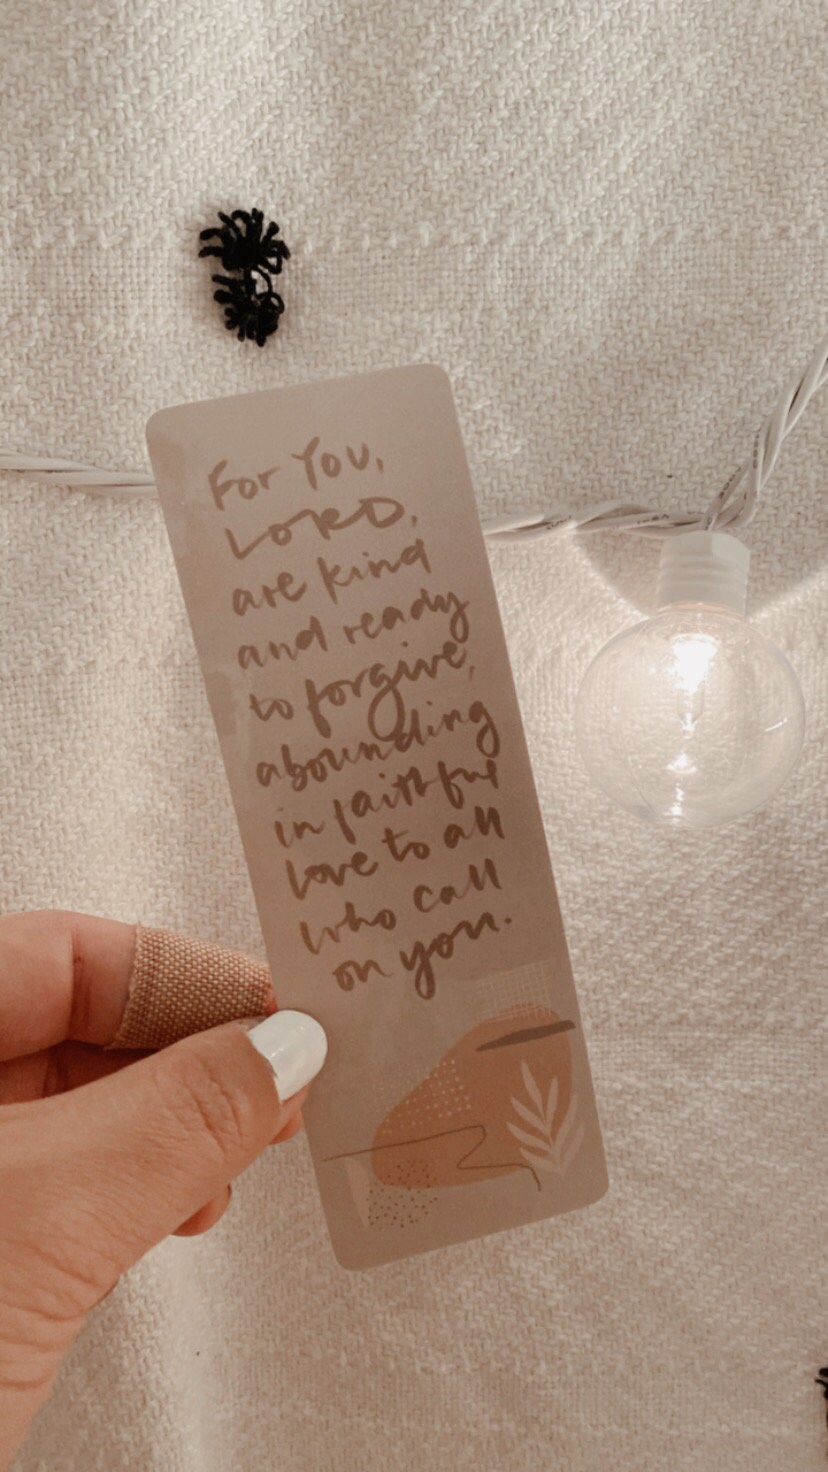 For You,
LORD,
are kind
and ready
to forgive,
abounding
in faithful
love to all
who call
on you.